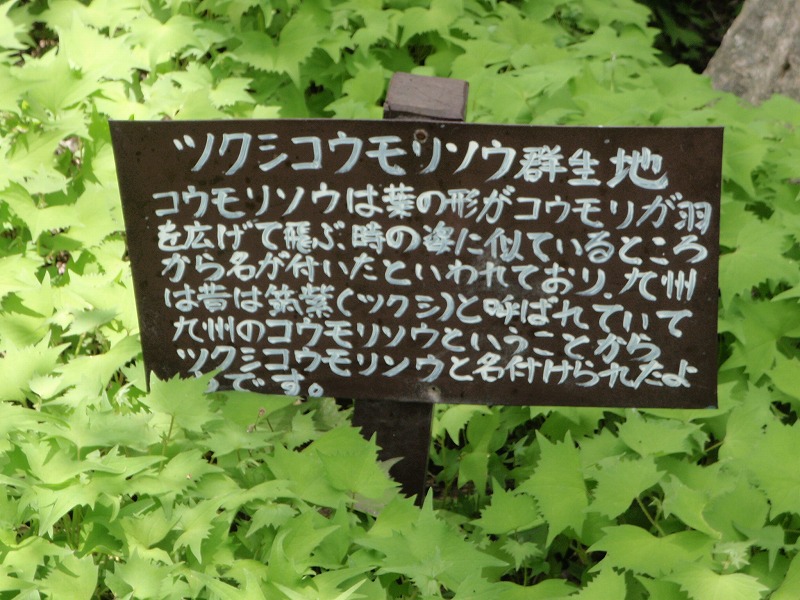 ツクシコウモリソウ群生地
コウモリソウは葉の形がコウモリが羽
を広げて飛ぶ、時の姿に似ているところ
から名が付いたといわれており、九州
は昔は筑紫(ツクシ)と呼ばれていて
九州のコウモリソウということから
ツクシコウモリソウと名付けられたよ
うです。